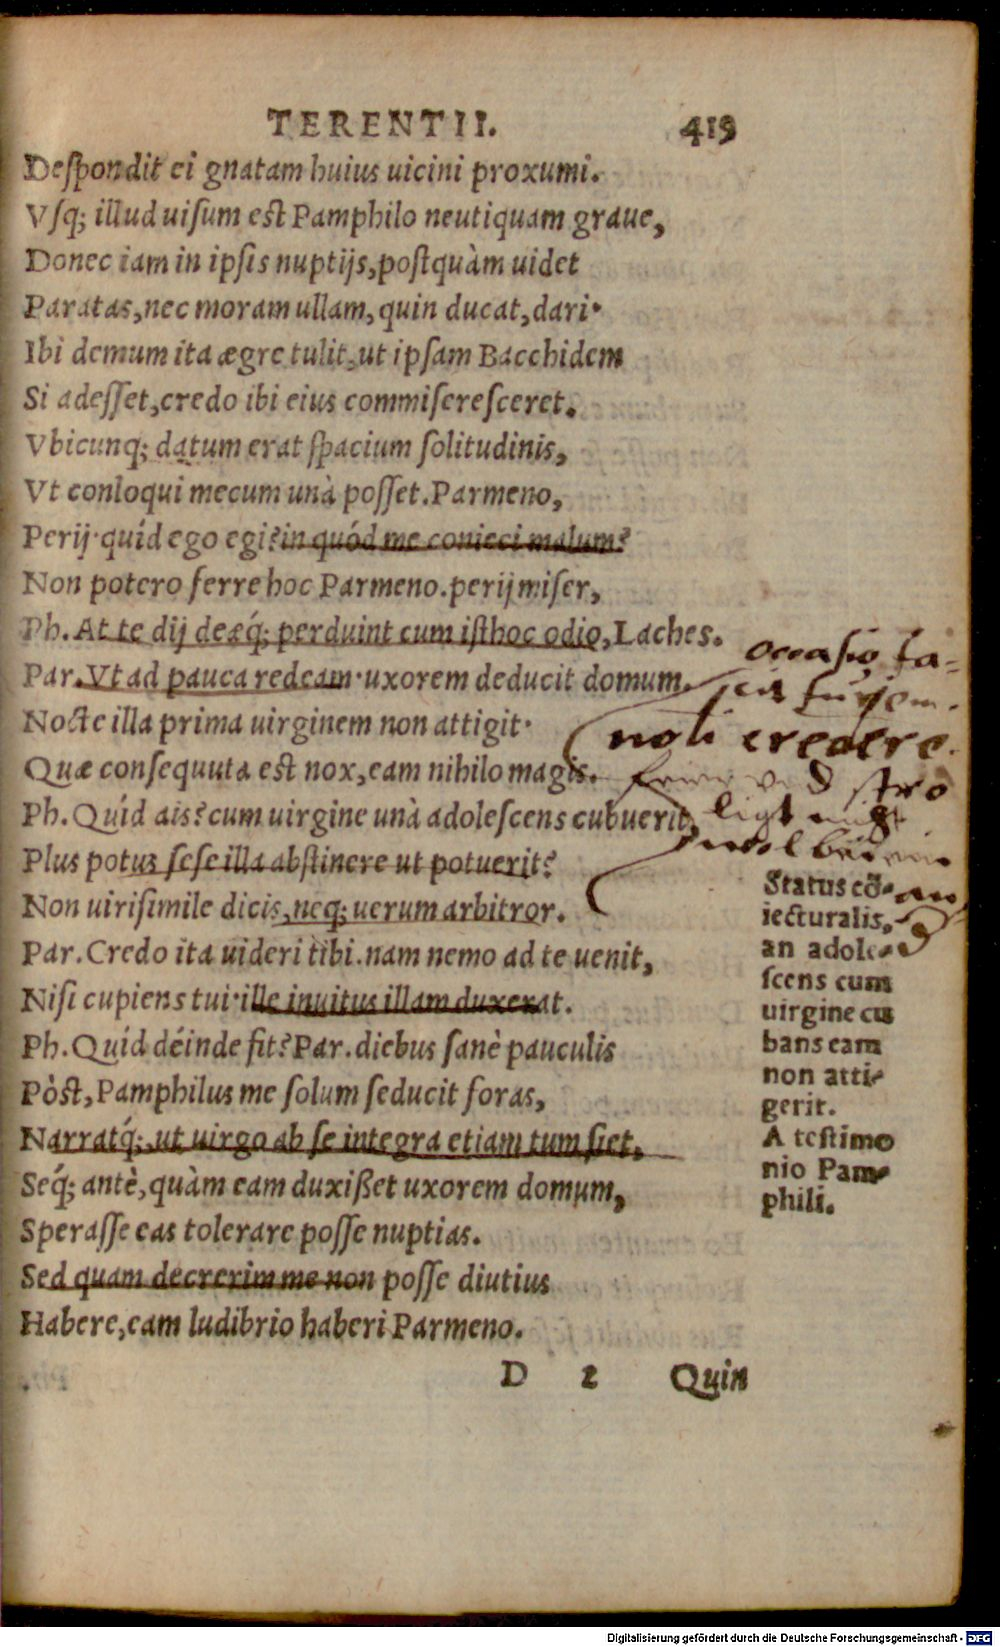 TERENTII. 419
Despondit ei gnatam huius uicini proxumi.
Vsq; illud uisum est Pamphilo neutiquam graue,
Donec iam in ipsis nuptijs, postquàm uidet
Paratas, nec moram ullam, quin ducat, dari·
Ibi demum ita ægre tulit, ut ipsam Bacchidem
Si adesset, credo ibi eius commiseresceret.
Vbicunq; datum erat spacium solitudinis,
Vt conloqui mecum unà posset. Parmeno,
Perij· quíd ego egi? in quód me conieci malum?
Non potero ferre hoc Parmeno. perij miser,
Ph. At te dij deæq́; perduint cum isthoc odio, Laches.
Par. Vt ad pauca redeam· uxorem deducit domum.
Nocte illa prima uirginem non attigit·
Quæ consequuta est nox, eam nihilo magis.
Ph. Quíd ais? cum uirgine unà adolescens cubuerit,
Plus potus sese illa abstinere ut potuerit?
Non uirisimile dicis, neq; uerum arbitror.
Par. Credo ita uideri tibi. nam nemo ad te uenit,
Nisi cupiens tui· ille inuitus illam duxerat.
Ph. Quíd déinde fit? Par. diebus sanè pauculis
Pòst, Pamphilus me solum seducit foras,
Narratq́;, ut uirgo ab se integra etiam tum siet,
Seq́; antè, quàm eam duxißet uxorem domum,
Sperasse eas tolerare posse nuptias.
Sed quam decrerim me non posse diutius
Habere, eam ludibrio haberi Parmeno.
D 2 Quin
occasio fa-
cit furem.
noli credere.
stro
ligt
wol
Status cõ-
iecturalis,
an adole-
scens cum
uirgine cu
bans eam
non atti-
gerit.
A testimo
nio Pam-
phili.
Digitalisierung gefördert durch die Deutsche Forschungsgemeinschaft - DFG